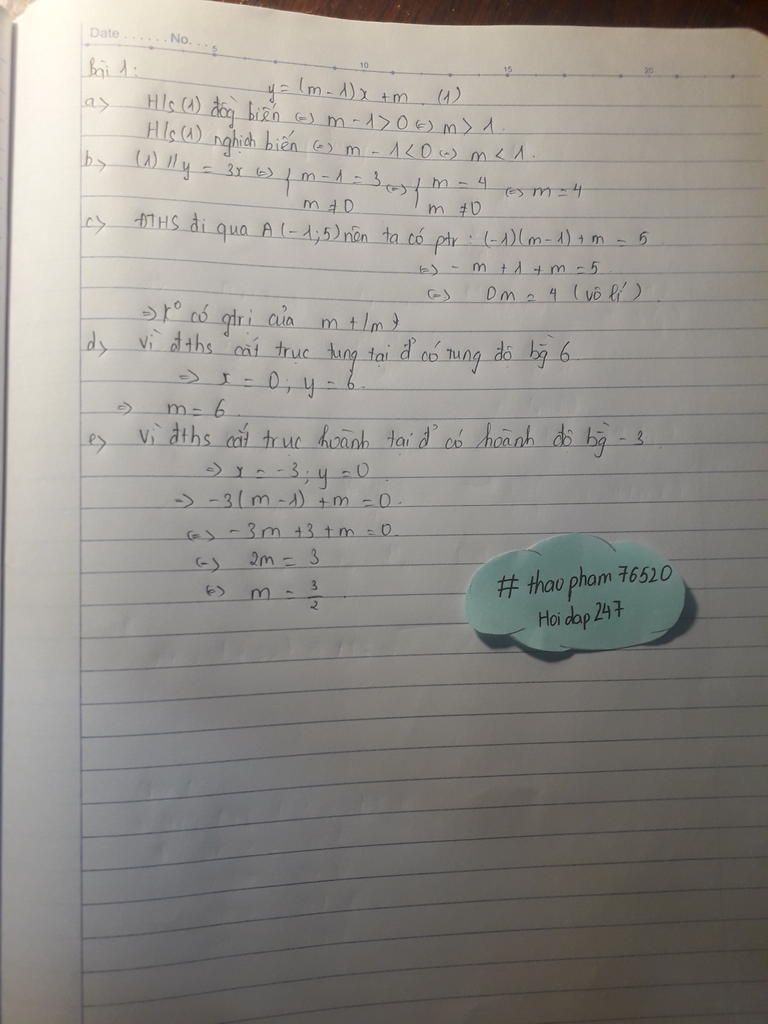 Date ...... No. ... 5 10 15 20
Bài 1:
y = (m - 1)x + m (1)
a> H/s (1) đồng biến ⇔ m - 1 > 0 ⇔ m > 1.
H/s (1) nghịch biến ⇔ m - 1 < 0 ⇔ m < 1.
b> (1) // y = 3x ⇔ { m - 1 = 3 ⇔ { m = 4 ⇔ m = 4
m ≠ 0 m ≠ 0
c> ĐTHS đi qua A(-1; 5) nên ta có ptr : (-1)(m - 1) + m = 5
⇔ - m + 1 + m = 5
⇔ 0m = 4 (vô lí)
⇒ k° có gtrị của m t/m
d> Vì đths cắt trục tung tại đ' có tung độ bg̀ 6
⇒ x = 0; y = 6.
⇒ m = 6
e> Vì đths cắt trục hoành tại đ' có hoành độ bg̀ - 3
⇒ x = -3; y = 0
⇒ -3(m - 1) + m = 0.
⇔ -3m + 3 + m = 0.
⇔ 2m = 3
⇔ m = 3/2
# thao pham 76520
Hoi dap 247